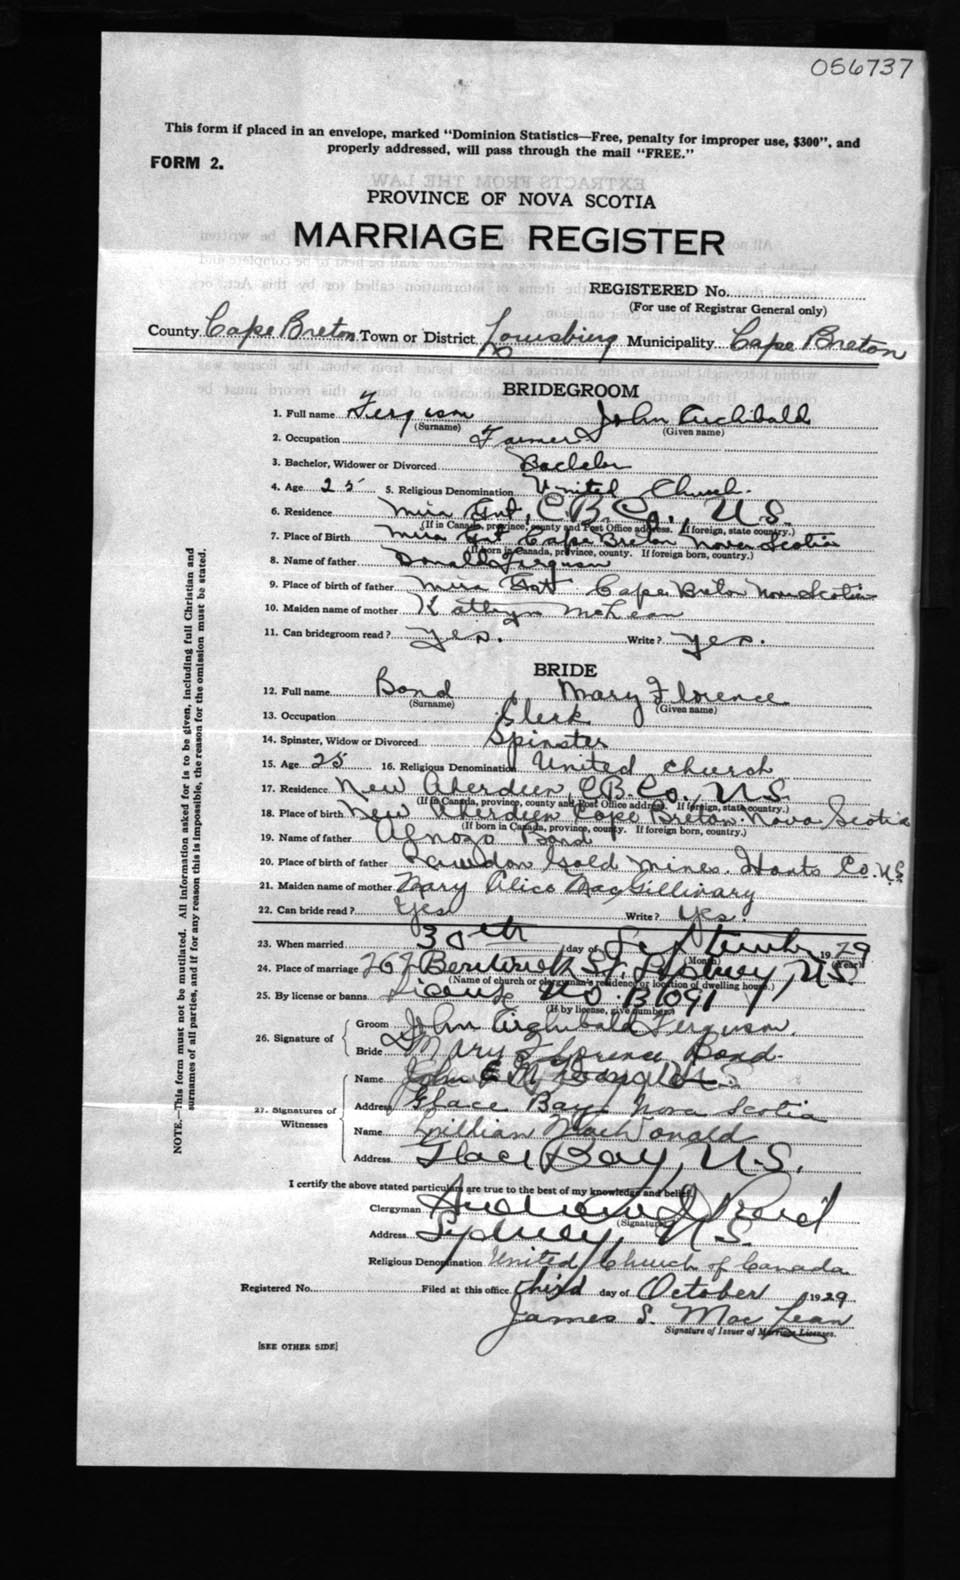 056737
This form if placed in an envelope, marked "Dominion Statistics—Free, penalty for improper use, $300", and
properly addressed, will pass through the mail "FREE."
FORM 2.
PROVINCE OF NOVA SCOTIA
MARRIAGE REGISTER
REGISTERED No.
(For use of Registrar General only)
County Cape Breton Town or District Louisburg Municipality Cape Breton
BRIDEGROOM
1. Full name Ferguson John Archibald
(Surname) (Given name)
2. Occupation Farmer
3. Bachelor, Widower or Divorced Bachelor
4. Age 25 5. Religious Denomination United Church.
6. Residence Mira Gut, C.B. Co., N.S.
(If in Canada, province, county and Post Office address. If foreign, state country.)
7. Place of Birth Mira Gut Cape Breton Nova Scotia
(If born in Canada, province, county. If foreign born, country.)
8. Name of father Donald Ferguson
9. Place of birth of father Mira Gut Cape Breton Nova Scotia
10. Maiden name of mother Kathryn McLean
11. Can bridegroom read? Yes. Write? Yes.
BRIDE
12. Full name Bond, Mary Florence
(Surname) (Given name)
13. Occupation Clerk
14. Spinster, Widow or Divorced Spinster
15. Age 25 16. Religious Denomination United Church
17. Residence New Aberdeen, C.B. Co., N.S.
(If in Canada, province, county and Post Office address. If foreign, state country.)
18. Place of birth New Aberdeen Cape Breton Nova Scotia
(If born in Canada, province, county. If foreign born, country.)
19. Name of father Bond
20. Place of birth of father Rawdon Gold Mines. Hants Co. N.S.
21. Maiden name of mother Mary Alice MacGillivary
22. Can bride read? Yes Write? Yes.
23. When married 30th day of September 1929
(Month) (Year)
24. Place of marriage St. Sydney, N.S.
(Name of church or clergyman's residence or location of dwelling house.)
25. By license or banns License No. B1091
(If by license, give number.)
26. Signature of Groom John Archibald Ferguson.
Bride Mary Florence Bond.
27. Signatures of Witnesses
Name John
Address Glace Bay, Nova Scotia
Name Lillian MacDonald
Address Glace Bay, N.S.
I certify the above stated particulars are true to the best of my knowledge and belief.
Clergyman
(Signature)
Address Sydney, N.S.
Religious Denomination United Church of Canada
Registered No. Filed at this office third day of October 1929
James S. MacLean
Signature of Issuer of Marriage Licenses.
[SEE OTHER SIDE]
NOTE.—This form must not be mutilated. All information asked for is to be given, including full Christian and
surnames of all parties, and if for any reason this is impossible, the reason for the omission must be stated.